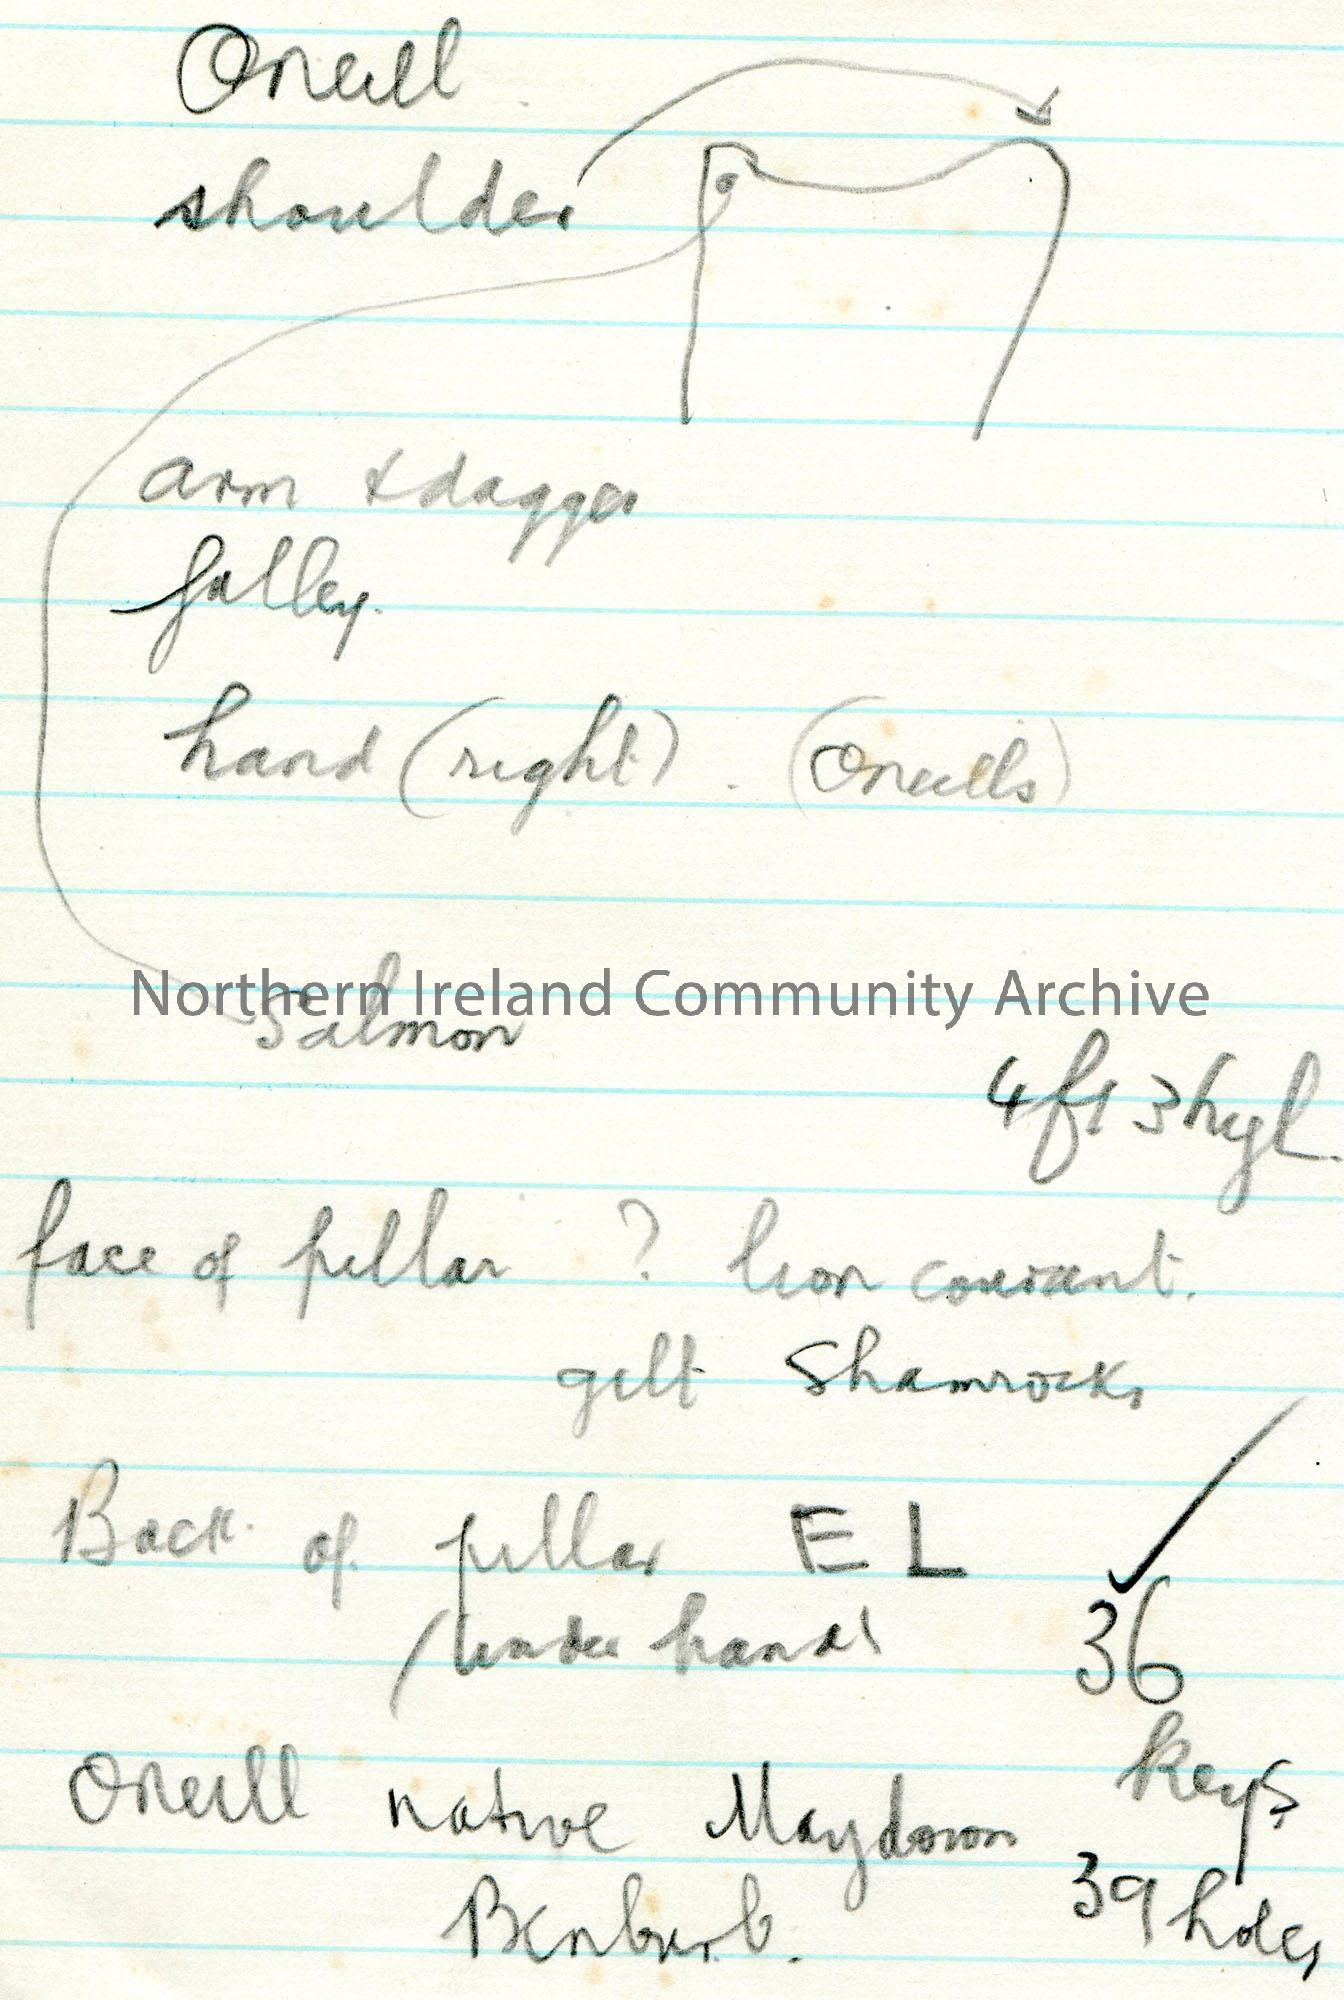 Oneill
shoulder
arm & dagger
galley.
hand (right). (Oneills)
Northern Ireland Community Archive
Salmon
4 ft 3 high.
face of pillar ? lion courant.
gilt Shamrocks
Back of pillar E L
/under hand
36
keys
Oneill native Maydown
39 holes
Benburb.